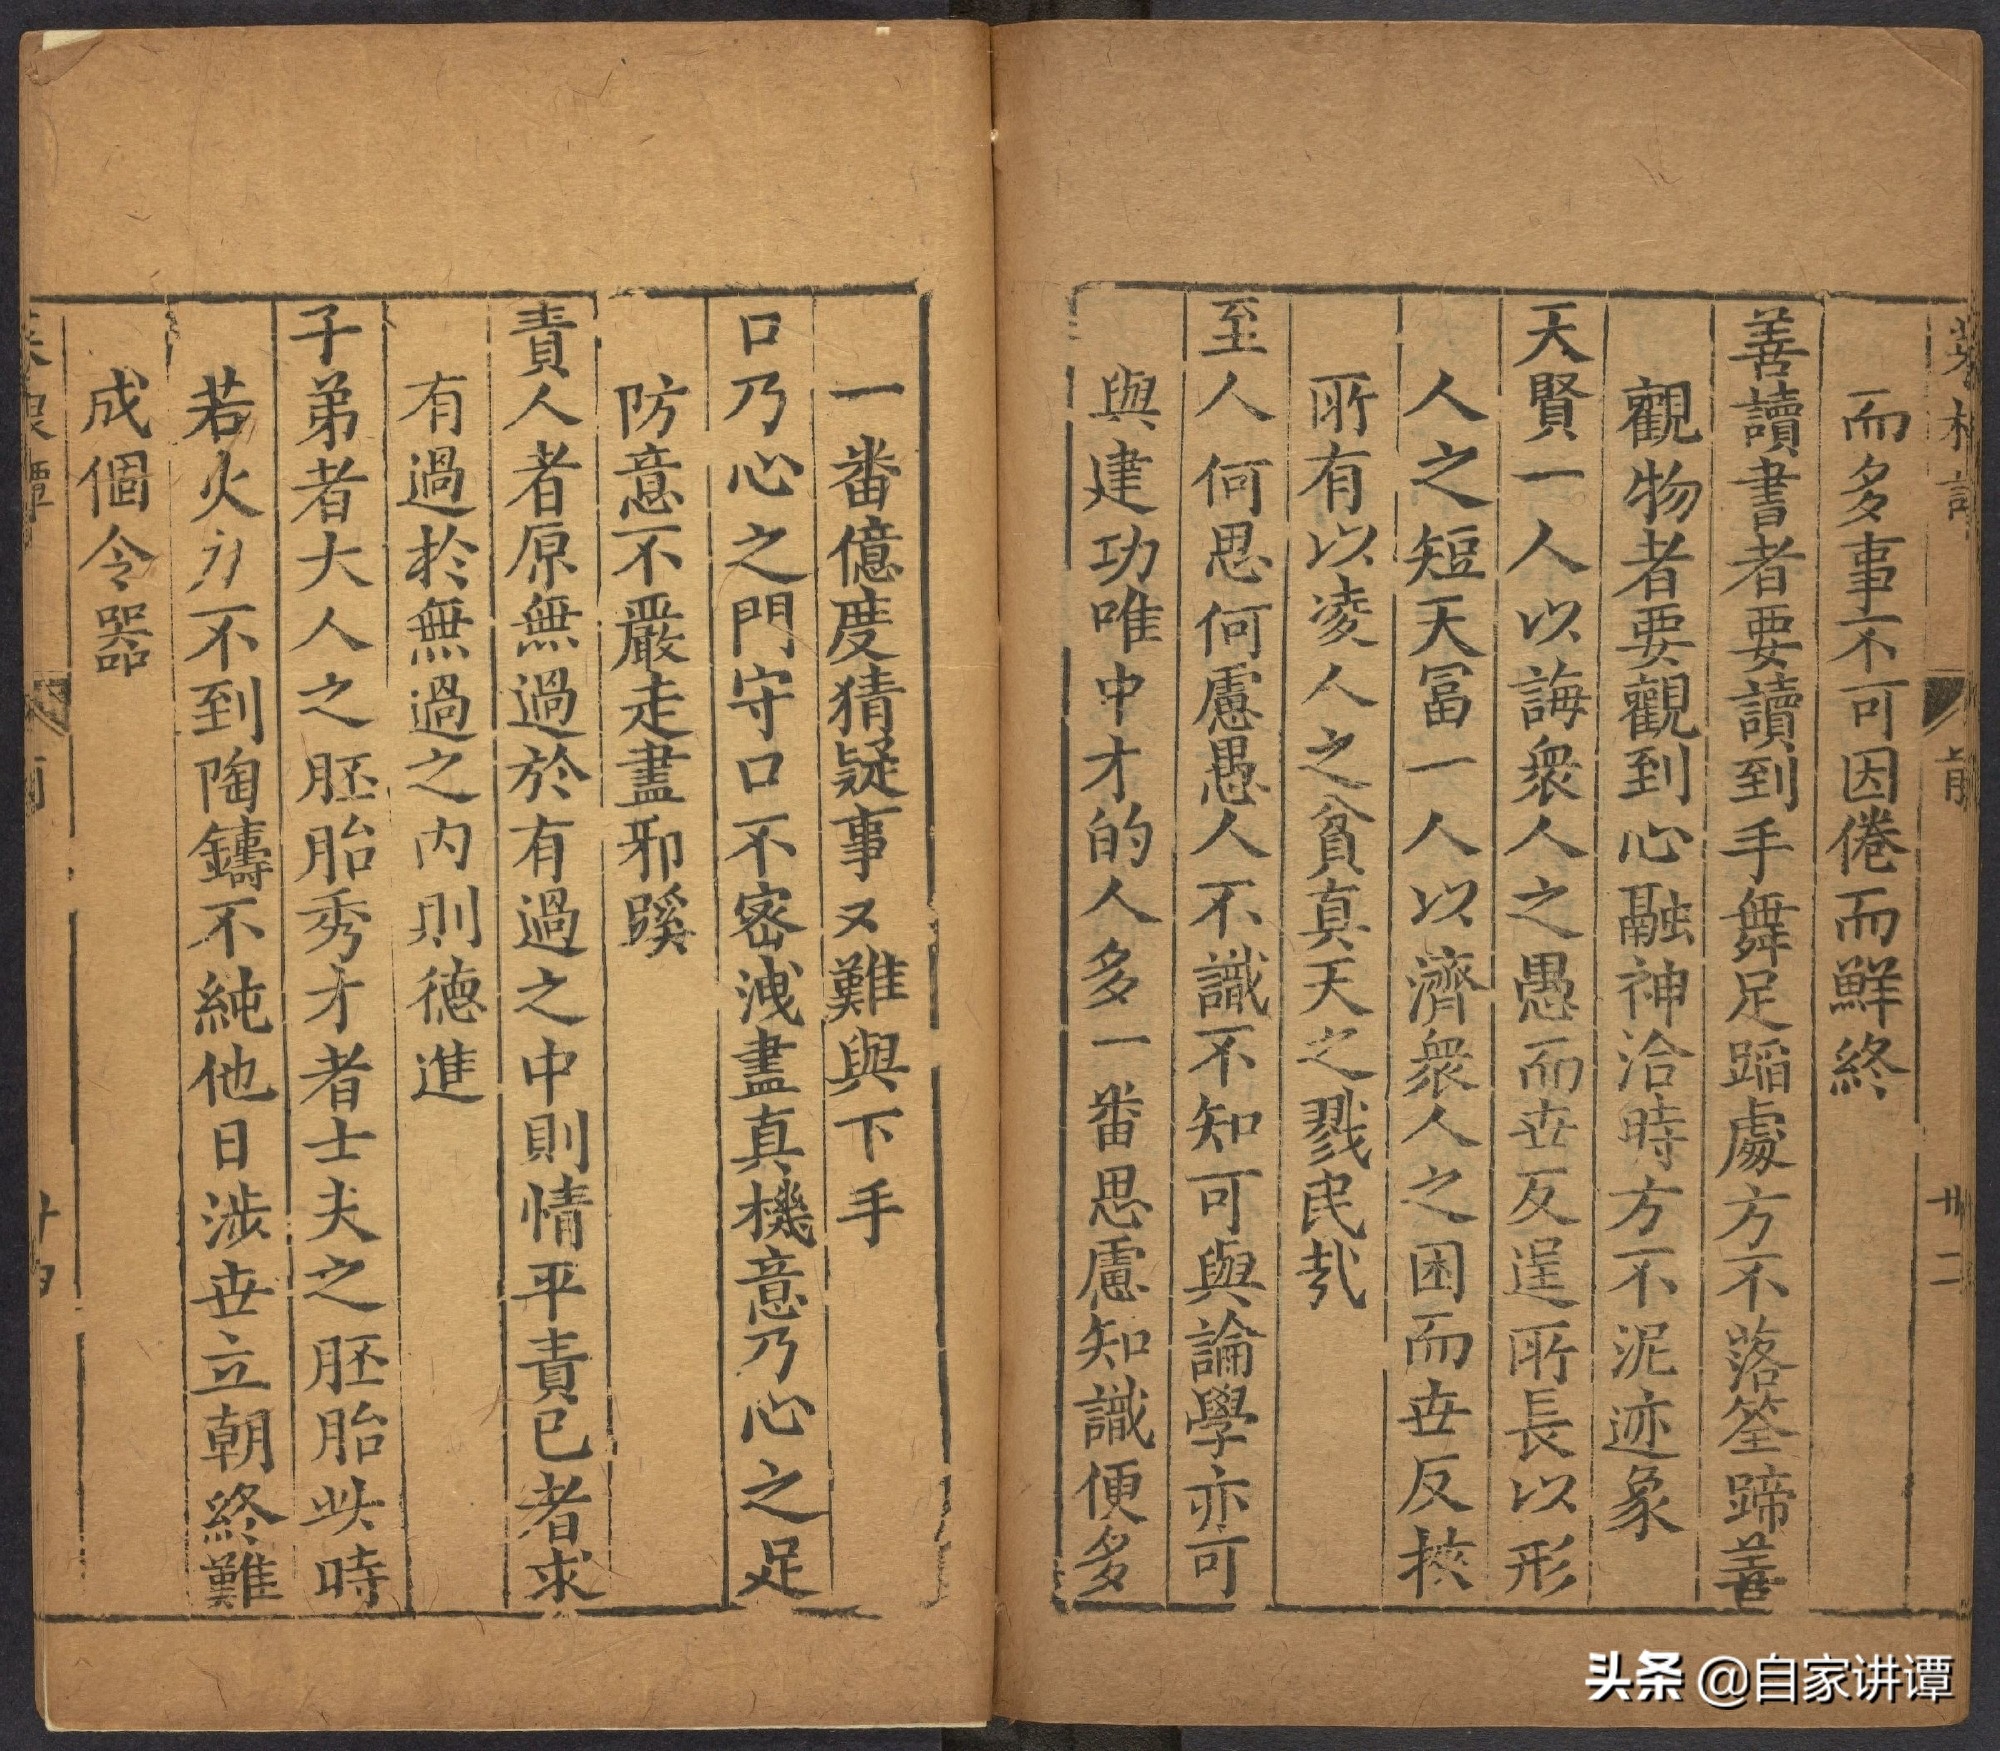 而多事不可因倦而鮮終
善讀書者要讀到手舞足蹈處方不落筌蹄善
觀物者要觀到心融神洽時方不泥迹象
天賢一人以誨衆人之愚而世反逞所長以形
人之短天冨一人以濟衆人之困而世反挾
所有以凌人之貧真天之戮民㢤
至人何思何慮愚人不識不知可與論學亦可
與建功唯中才的人多一番思慮知識便多
一番億度猜疑事又難與下手
口乃心之門守口不密洩盡真機意乃心之足
防意不嚴走盡邪蹊
責人者原無過於有過之中則情平責已者求
有過於無過之內則德進
子弟者大人之胚胎秀才者士夫之胚胎此時
若火力不到陶鑄不純他日涉世立朝終難
成個令器
前
廿二
头条 @自家讲谭